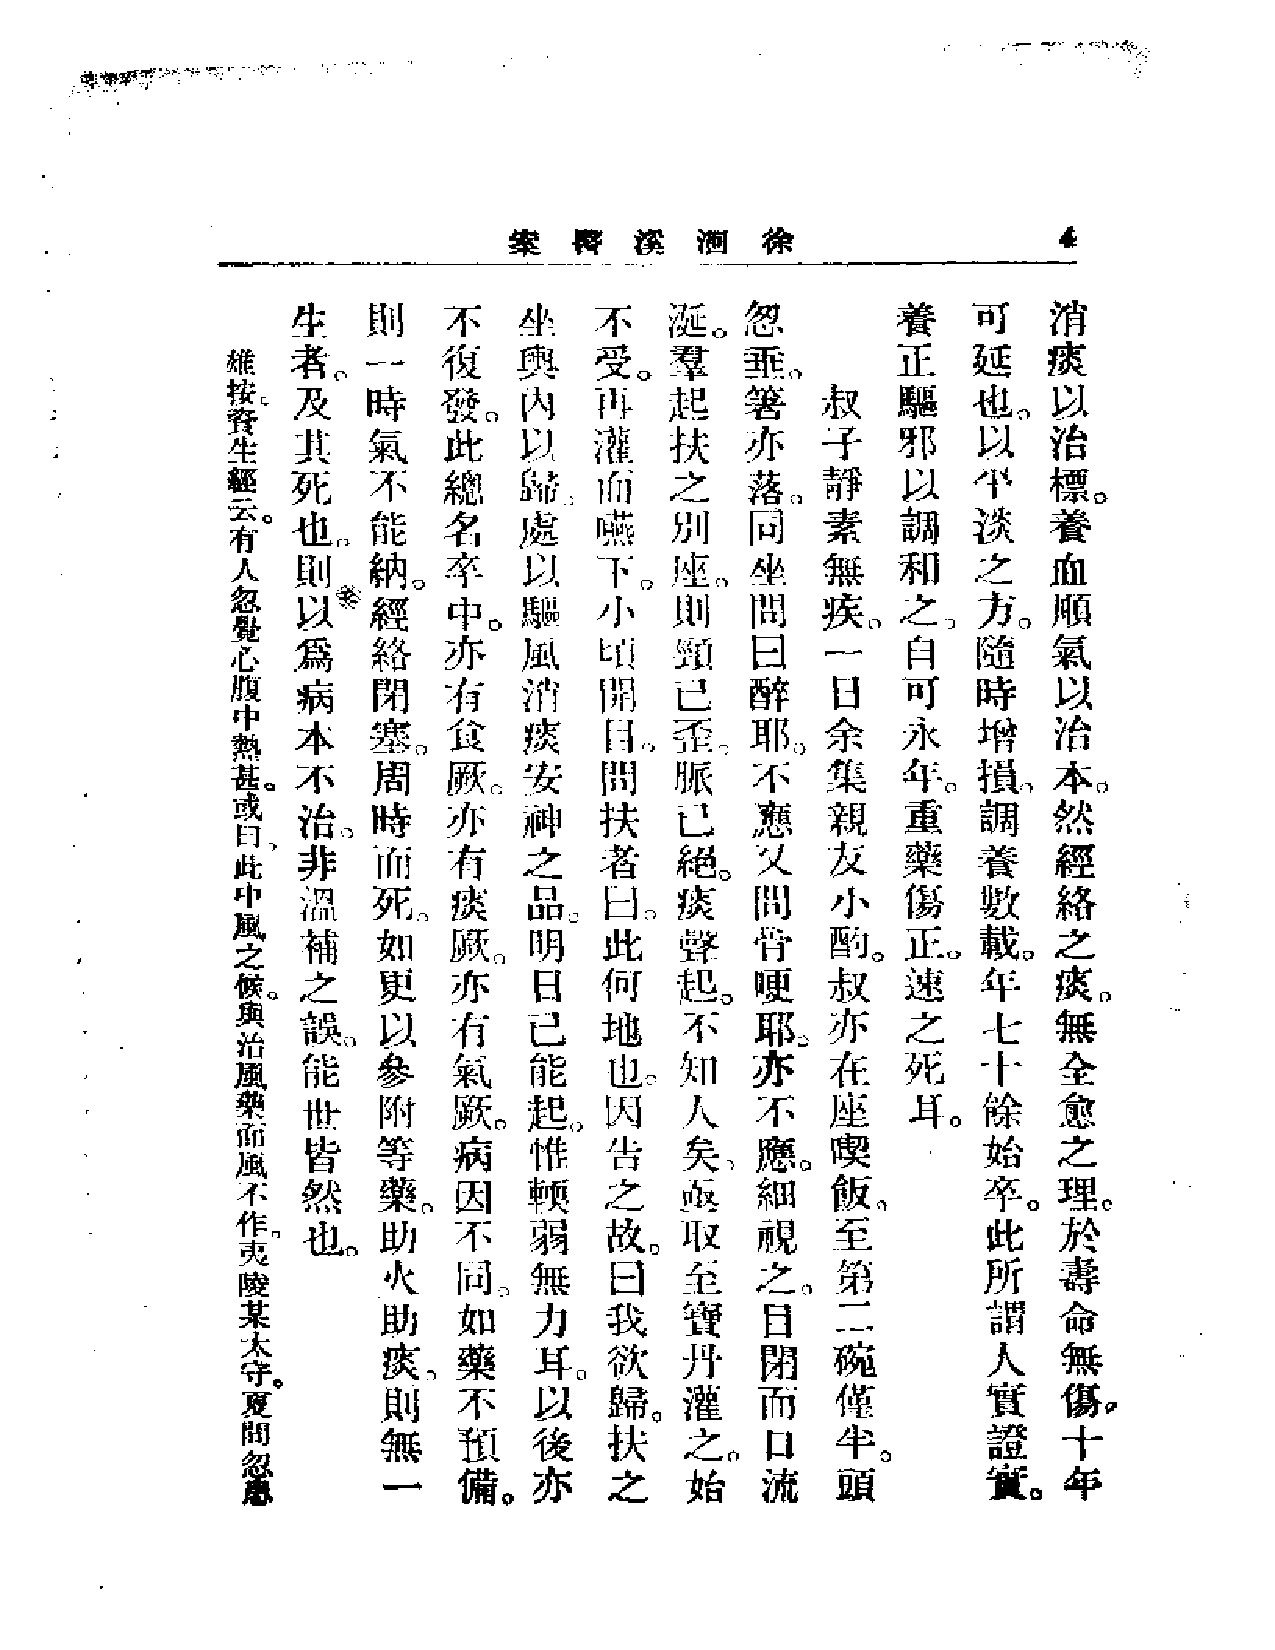 徐洄溪醫案
4
消痰以治標。養血順氣以治本。然經絡之痰。無全愈之理。於壽命無傷。十年
可延也。以平淡之方。隨時增損、調養數載。年七十餘始卒。此所謂人實證實。
養正驅邪以調和之、自可永年。重藥傷正。速之死耳。
叔子靜素無疾、一日余集親友小酌。叔亦在座喫飯。至第二碗僅半。頭
忽垂。箸亦落。同坐問曰醉耶。不應又問骨哽耶。亦不應。細視之。目閉而口流
涎。羣起扶之別座。則頸已歪、脈已絕。痰聲起。不知人矣、亟取至寶丹灌之。始
不受。再灌而嚥下。小頃開目。問扶者曰。此何地也。因告之故。曰我欲歸。扶之
坐輿內以歸、處以驅風消痰安神之品。明日已能起。惟輭弱無力耳。以後亦
不復發。此總名卒中。亦有食厥。亦有痰厥。亦有氣厥。病因不同。如藥不預備。
則一時氣不能納。經絡閉塞。周時而死。如更以參附等藥。助火助痰、則無一
生者。及其死也。則以爲病本不治。非溫補之誤。能世皆然也。
雄按。資生經云。有人忽覺心腹中熱甚。或曰、此中風之候。與治風藥而風不作。夷陵某太守。夏間忽患